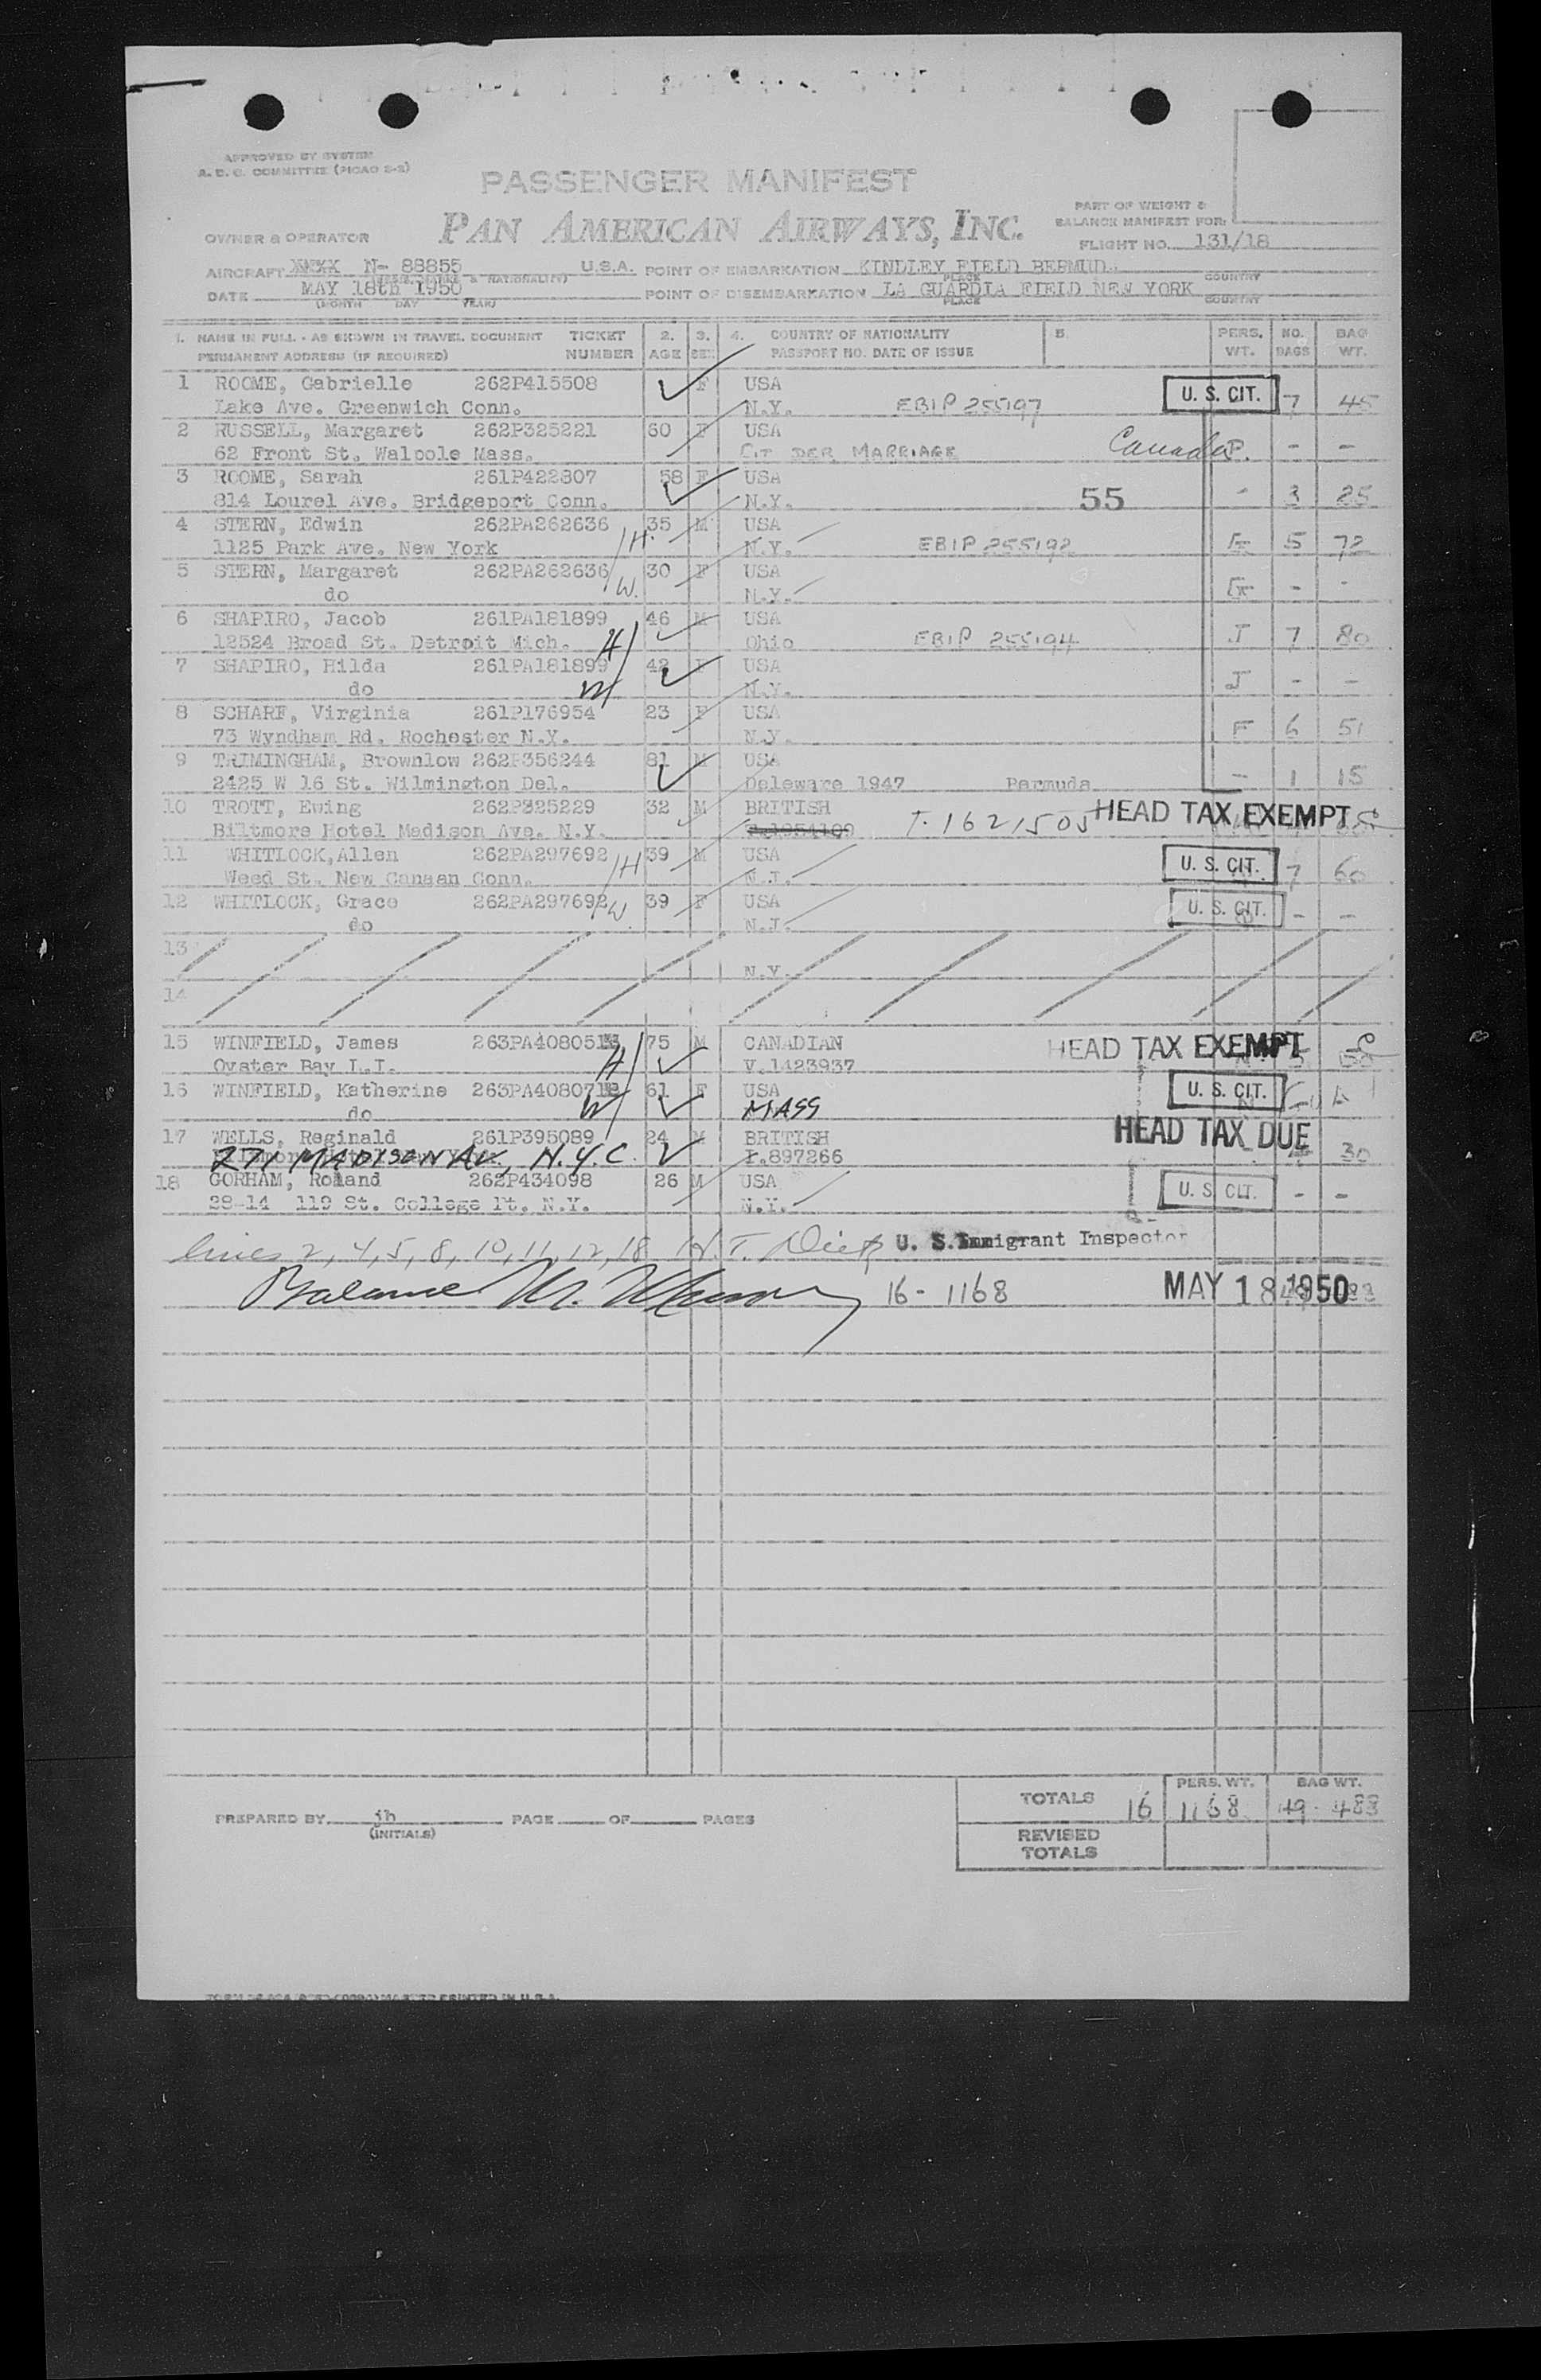 APPROVED BY SYSTEM
A. D. C. COMMITTEE (PICAO 2-2)
PASSENGER MANIFEST
OWNER & OPERATOR PAN AMERICAN AIRWAYS, INC.
PART OF WEIGHT &
BALANCE MANIFEST FOR:
FLIGHT NO. 131/18
AIRCRAFT N- 88855 U.S.A. POINT OF EMBARKATION KINDLEY FIELD BERMUD
& NATIONALITY) PLACE COUNTRY
DATE MAY 18th 1950 POINT OF DISEMBARKATION LA GUARDIA FIELD NEW YORK
(MONTH DAY YEAR) PLACE COUNTRY
1. NAME IN FULL - AS SHOWN IN TRAVEL DOCUMENT TICKET 2. 3. 4. COUNTRY OF NATIONALITY 5. PERS. NO. BAG
PERMANENT ADDRESS (IF REQUIRED) NUMBER AGE SEX PASSPORT NO. DATE OF ISSUE WT. BAGS WT.
1 ROOME, Gabrielle 262P415508 F USA U. S. CIT.
Lake Ave. Greenwich Conn. N.Y. EBIP 255197 7 45
2 RUSSELL, Margaret 262P325221 60 F USA Canada
62 Front St. Walpole Mass. CIT DER MARRIAGE P. - -
3 ROOME, Sarah 261P422807 58 F USA
814 Lourel Ave. Bridgeport Conn. N.Y. 55 - 3 25
4 STERN, Edwin 262PA262636 35 M USA
1125 Park Ave. New York H. N.Y. EBIP 255192 5 72
5 STERN, Margaret 262PA262636 30 F USA
do W. N.Y. - -
6 SHAPIRO, Jacob 261PA181899 46 M USA
12524 Broad St. Detroit Mich. H Ohio EBIP 255194 J 7 80
7 SHAPIRO, Hilda 261PA181899 42 F USA
do W N.Y. J - -
8 SCHARF, Virginia 261P176954 23 F USA
73 Wyndham Rd. Rochester N.Y. N.Y. F 6 51
9 TRIMINGHAM, Brownlow 262P356244 81 M USA
2425 W 16 St. Wilmington Del. Deleware 1947 Bermuda - 1 15
10 TROTT, Ewing 262P325229 32 M BRITISH HEAD TAX EXEMPT
Biltmore Hotel Madison Ave. N.Y. T.1621505
11 WHITLOCK,Allen 262PA297692 39 M USA U. S. CIT.
Weed St. New Canaan Conn. H N.J. 7 60
12 WHITLOCK, Grace 262PA297692 39 F USA U. S. CIT.
do W N.J. - -
13
N.Y.
14
15 WINFIELD, James 263PA408051 75 M CANADIAN HEAD TAX EXEMPT
Oyster Bay L.I. H V.1423937
16 WINFIELD, Katherine 263PA408071 61 F USA U. S. CIT.
do W MASS
17 WELLS, Reginald 261P395089 24 M BRITISH HEAD TAX DUE
271 MADISON AV, N.Y.C. I.897266 30
18 GORHAM, Roland 262P434098 26 M USA U. S. CIT.
28-14 119 St. College Pt. N.Y. N.Y. - -
lines 2, 4, 5, 8, 10, 11, 12, 18 U. S. Immigrant Inspector
Balance 16 - 1168 MAY 18 1950
TOTALS 16 PERS. WT. 1168 BAG WT. 49 - 488
PREPARED BY jh PAGE OF PAGES
(INITIALS)
REVISED
TOTALS